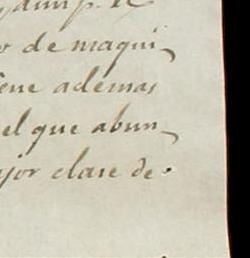 de maqui,
ene ademas
el que abun,
jor clase de